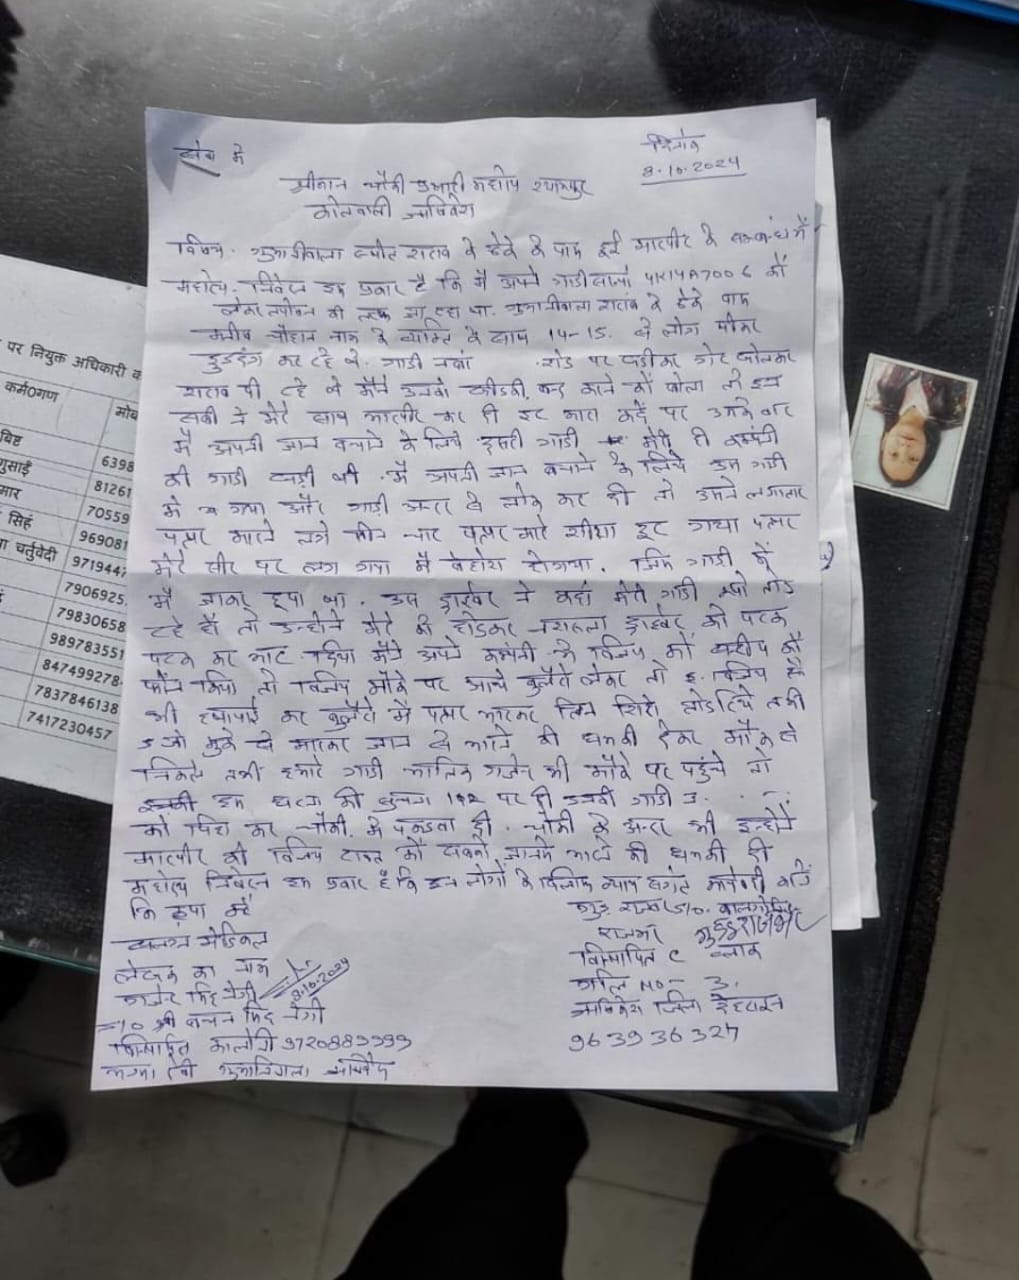 सेवा में
दिनांक
8.10.2024
श्रीमान चौकी प्रभारी महोदय श्यामपुर
कोतवाली ऋषिकेश
विषय. गुमानीवाला स्थित शराब के ठेके के पास हुई मारपीट के सम्बन्ध में
महोदय. निवेदन इस प्रकार है कि मैं अपने गाडी UK14A7006 को
लेकर तपोवन की तरफ जा रहा था. गुमानीवाला शराब के ठेके पास
चौहान नाम के व्यक्ति के साथ 14-15. थे लोग पीकर
हुडदंग कर रहे थे. गाडी रोड पर खडीकर गेट खोलकर
शराब पी रहे थे मैंने उनको बन्द करने को बोला तो इन
सबी ने मेरे साथ मारपीट कर दी
मैं अपनी जान बचाने के लिये दूसरी गाडी मेरी ही कम्पनी
की गाडी खडी थी. मैं अपनी जान बचाने के लिये उस गाडी
में गया और गाडी अन्दर से लोक कर दी तो उसने लगातार
पत्थर मारने लगे तीन चार पत्थर मारे शीशा टूट गया पत्थर
मेरे सीर पर लग गया मैं बेहोश होगया. जिस गाडी में
मैं जाकर छुपा था. उस ड्राईवर ने कहा मेरी गाडी क्यो तोड
रहे हो तो उन्होने मेरे को छोडकर ड्राइवर को पटक
पटक कर मार दिया मैंने अपने कम्पनी के विजय को
फोन किया तो विजय मौके पर आये बुलैरो लेकर तो विजय से
भी हाथापाई कर बुलैरो में पत्थर मारकर तीन शिशे तोड दिये
जान से मारने की धमकी देकर मौके से
निकले तभी हमारे गाडी मालिक गजेन्द्र भी मौके पर पहुंचे तो
इस घटना की सुचना 112 पर दी उनकी गाडी
को पिछा कर चौकी. में पकडवा दी. चौकी के अन्दर भी इन्होने
मारपीट की विजय रावत को सबने जानसे मारने की धमकी दी
महोदय निवेदन इस प्रकार है कि इन लोगों के खिलाफ न्याय संगत
कि कृपा करें
संलग्न मेडिकल
लेखक का नाम
गजेन्द्र सिंह नेगी
8.10.2024
S/o श्री सिंह नेगी
विस्थापित कालोनी 9720889999
गुमानीवाला ऋषिकेश
S/o.
राजभर गुड्डु राजभर
विस्थापित C ब्लाक
गली NO- 3.
ऋषिकेश जिला देहरादून
9639936327
पर नियुक्त अधिकारी
कर्म०गण
मोब
बिष्ट
6398
गुसाई
81261
मार
70559
सिहं
969081
चतुर्वेदी
9719447
7906925
79830658
989783551
847499278
7837846138
7417230457